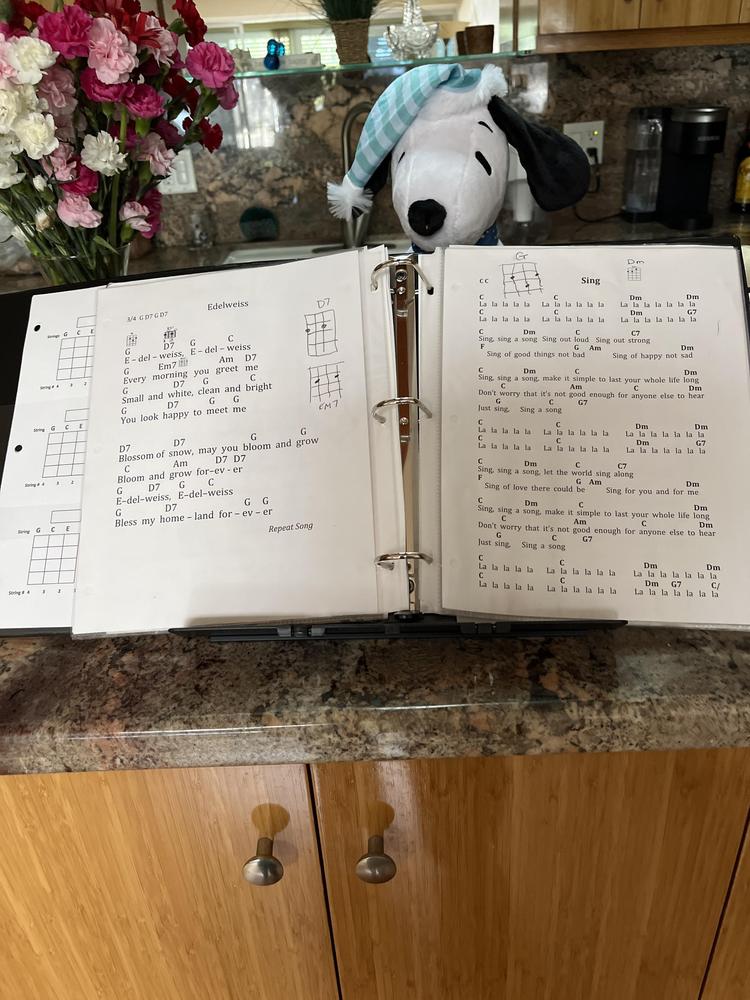 Strings G C E
String # 4 3 2
String G C E
String # 4 3 2
String G C E
String # 4 3 2
Edelweiss
3/4 G D7 G D7
D7
G D7 G C
E – del – weiss, E – del – weiss
Em7 Am D7
Every morning you greet me
G D7 G C
Small and white, clean and bright
G D7 G G
You look happy to meet me
EM7
D7 D7 G G
Blossom of snow, may you bloom and grow
C Am D7 D7
Bloom and grow for–ev – er
G D7 G C
E–del–weiss, E–del–weiss
G D7 G G
Bless my home – land for – ev – er
Repeat Song
G
Dm
C C
Sing
C C Dm Dm
La la la la la La la la la la la La la la la la la la
C C Dm G7
La la la la la La la la la la la La la la la la la la
C Dm C C7
Sing, sing a song Sing out loud Sing out strong
F G Am Dm
Sing of good things not bad Sing of happy not sad
C Dm C Dm
Sing, sing a song, make it simple to last your whole life long
C Am C Dm
Don't worry that it's not good enough for anyone else to hear
G C G7
Just sing, Sing a song
C C Dm Dm
La la la la la La la la la la la La la la la la la la
C C Dm G7
La la la la la La la la la la la La la la la la la la
C Dm C C7
Sing, sing a song, let the world sing along
F G Am Dm
Sing of love there could be Sing for you and for me
C Dm C Dm
Sing, sing a song, make it simple to last your whole life long
C Am C Dm
Don't worry that it's not good enough for anyone else to hear
G C G7
Just sing, Sing a song
C C Dm Dm
La la la la la La la la la la la La la la la la la la
C C Dm G7 C/
La la la la la La la la la la la La la la la la la la